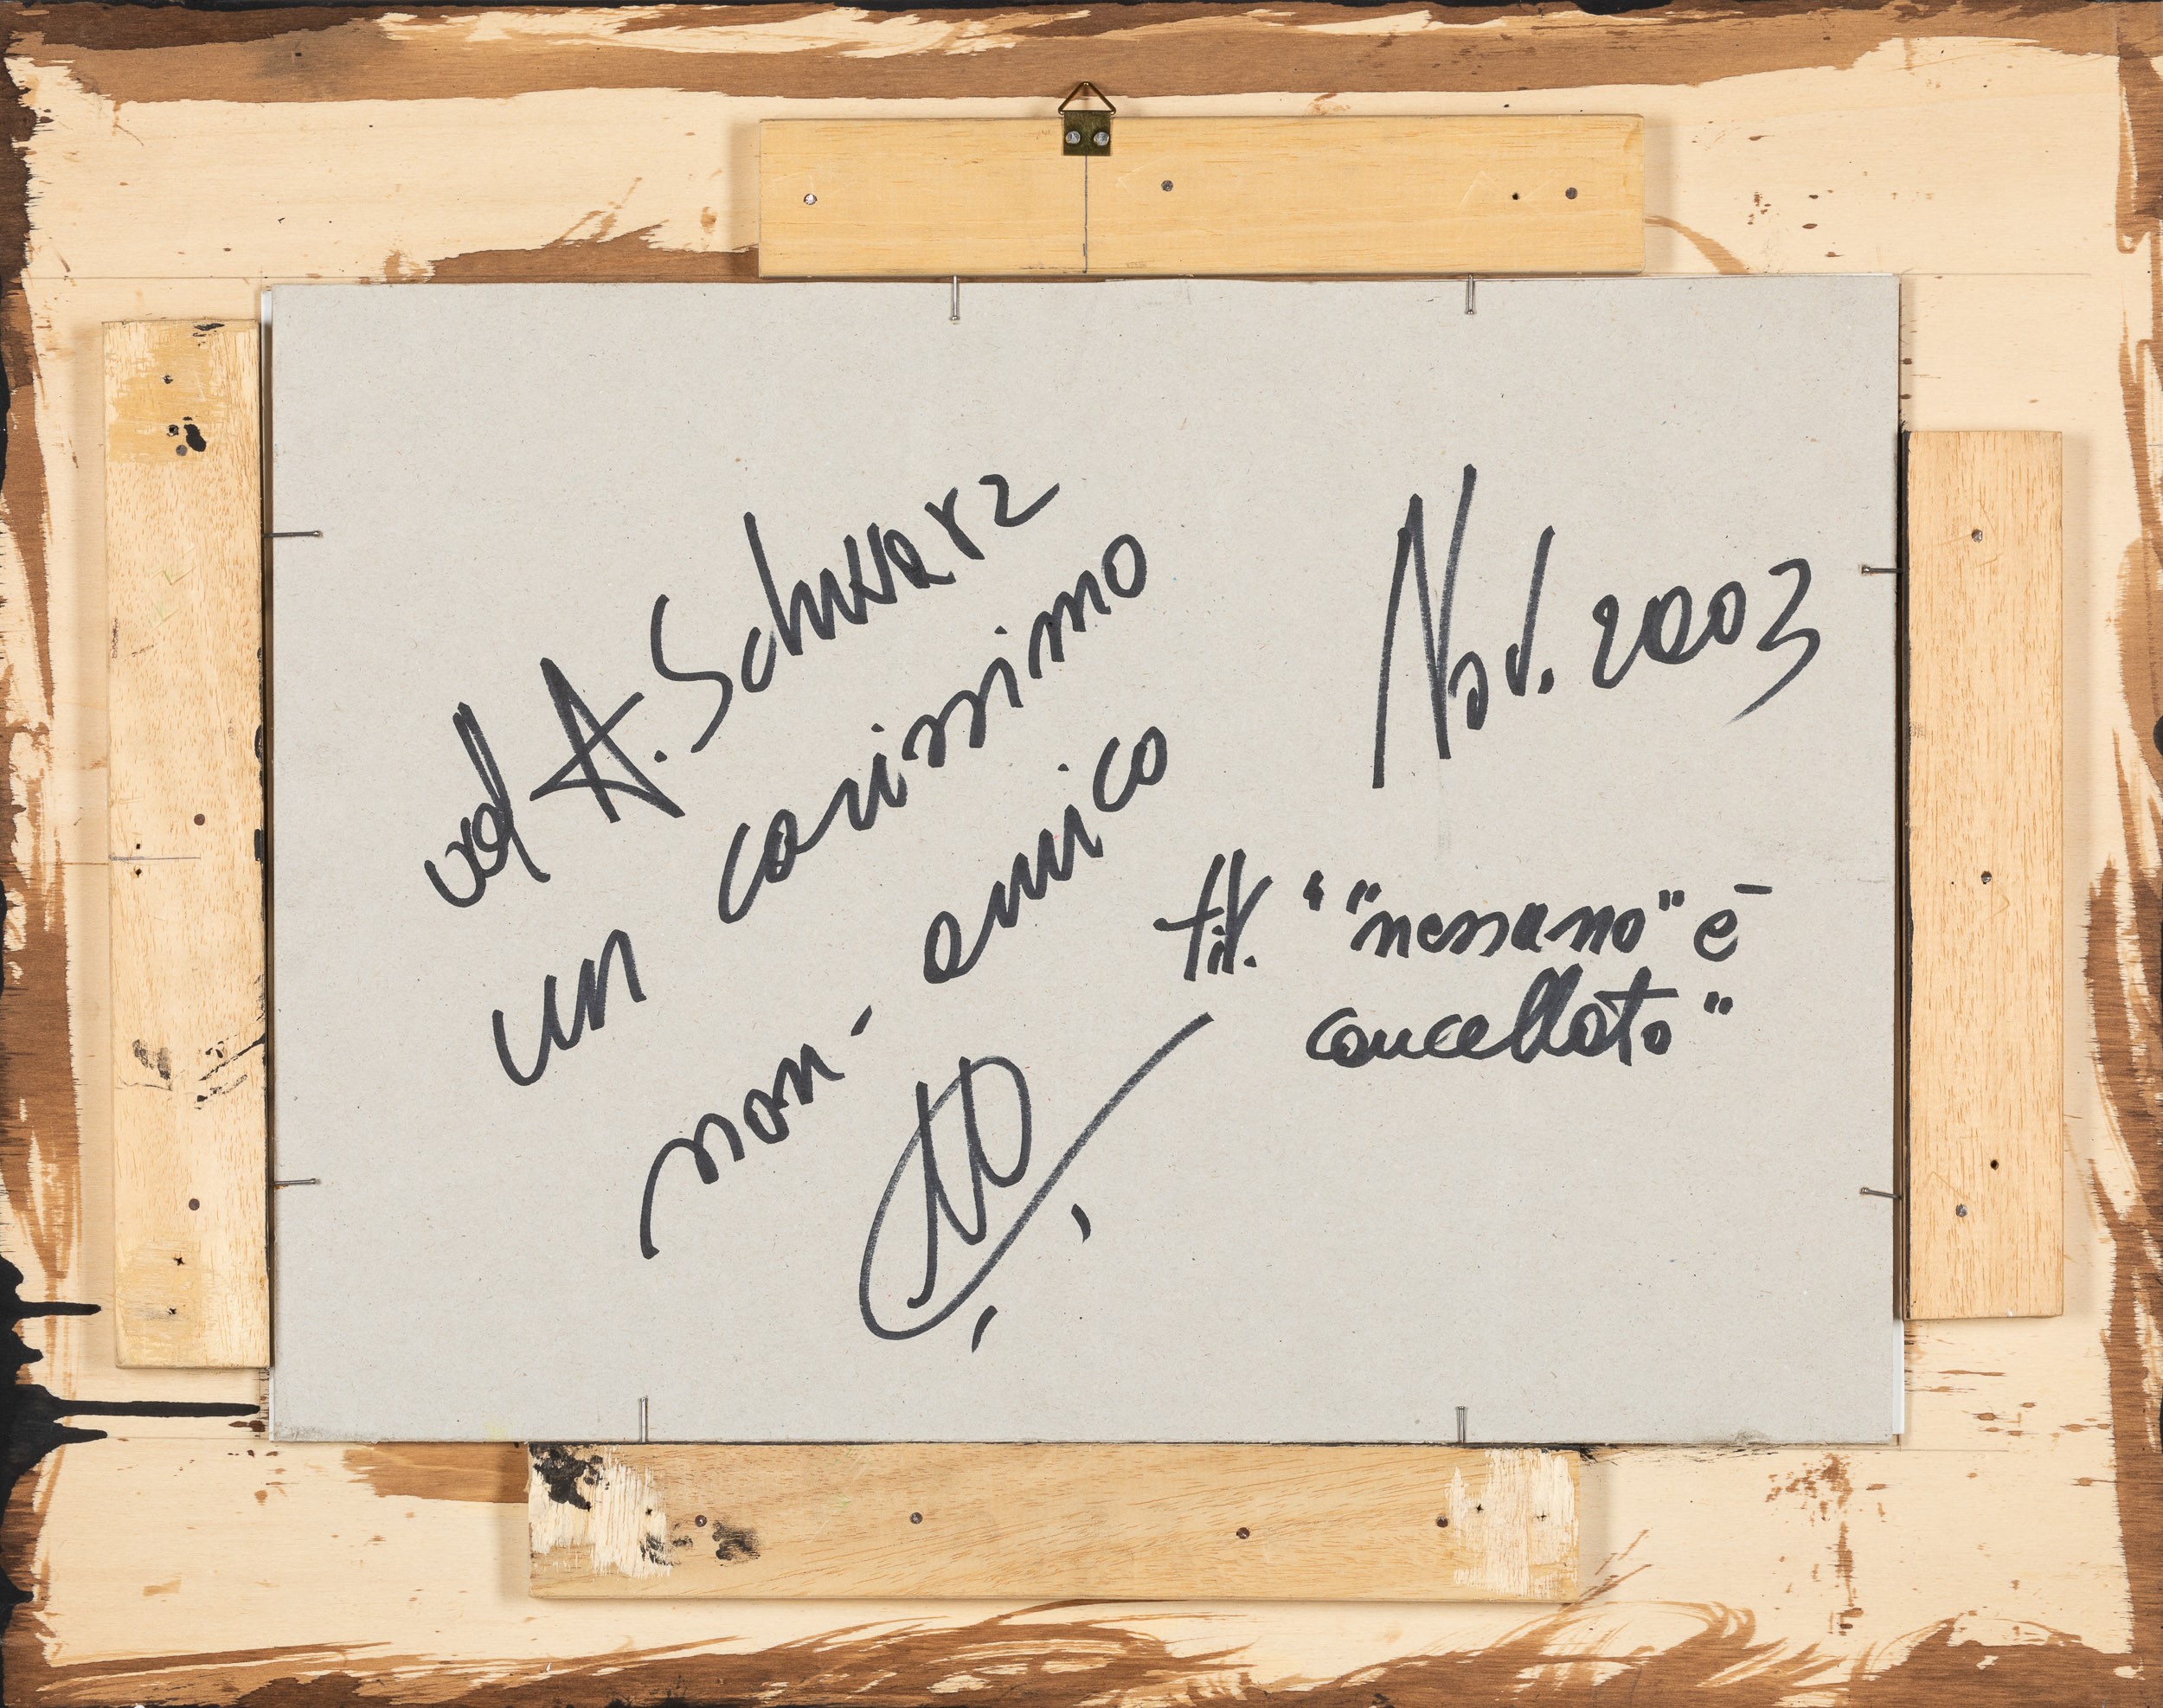 ad A. Schwarz
un carissimo
non-amico
Nov. 2003
tit. ""nessuno" è
cancellato"